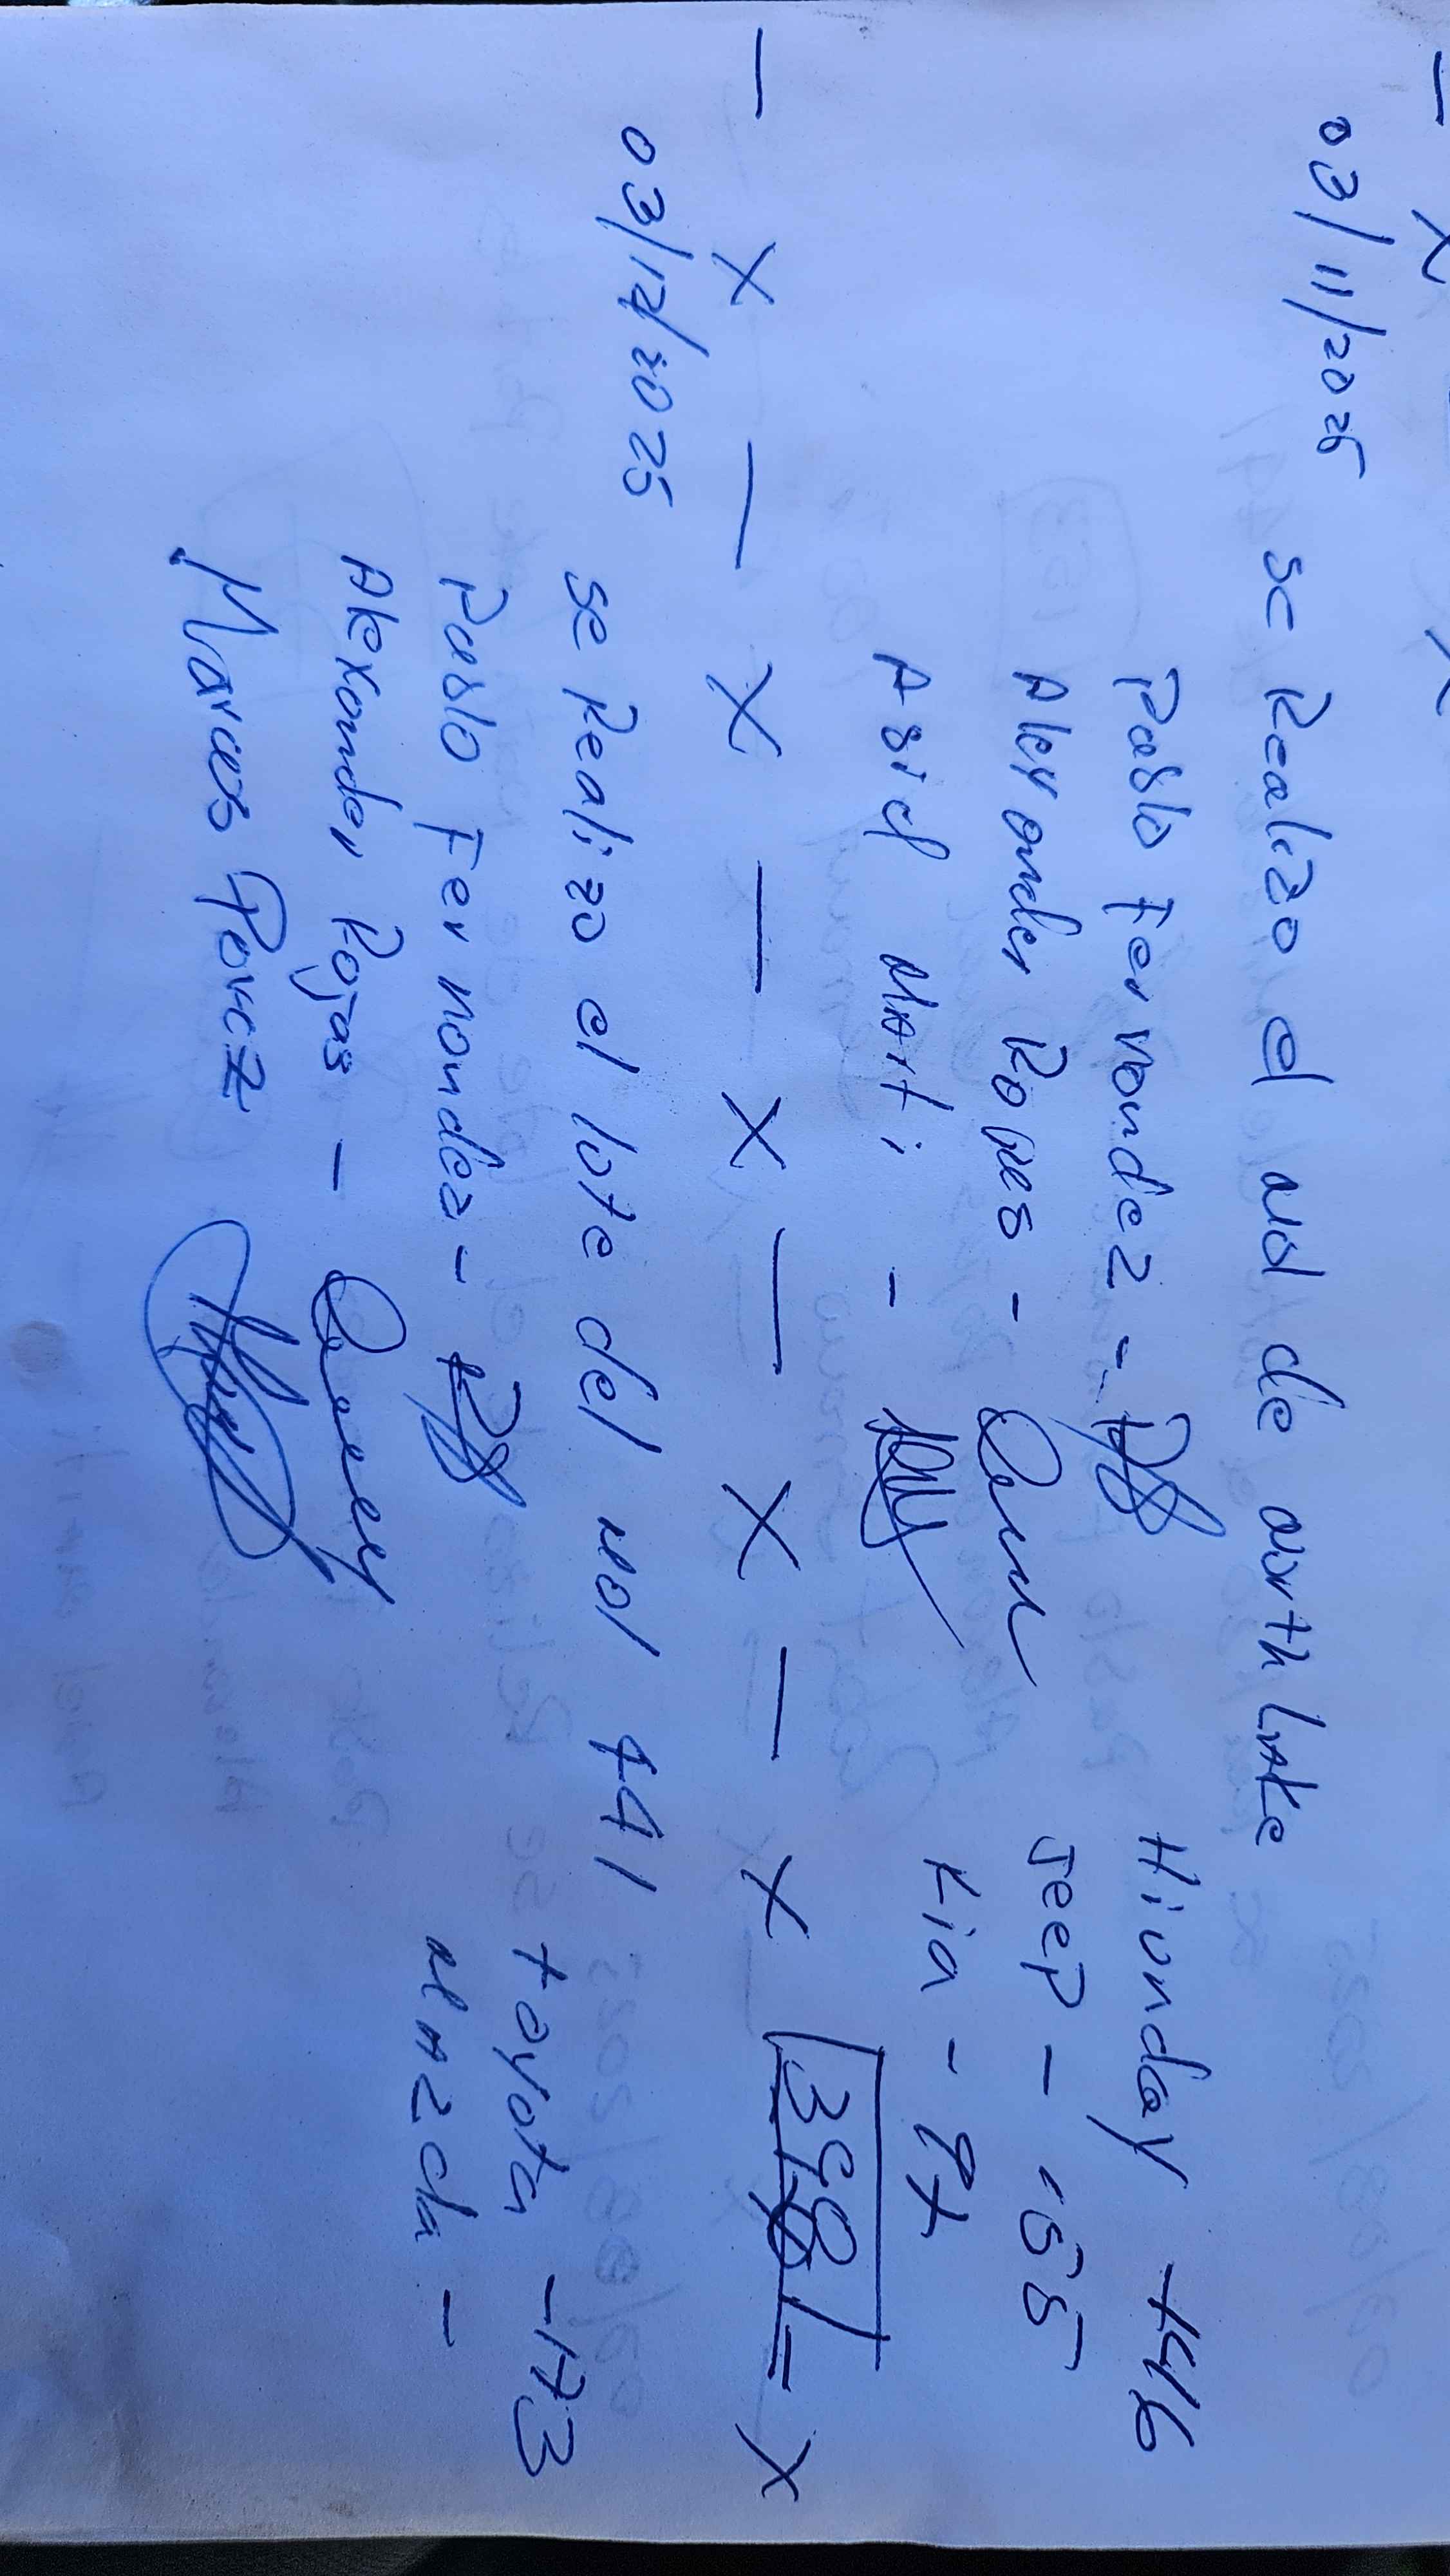 — X X
03/11/2025 se Realizo el mol de north Lake
Pablo Fernandez - Hiunday - 146
Alexander Rojas - Jeep - 155
Asief Marti - Kia - 97
— X — X — X — X — X 398 — X
03/12/2025 se Realizo el lote del mol 441
Pablo Fernandez - toyota - 173
Alexander Rojas - MAzda -
Marcos Perez